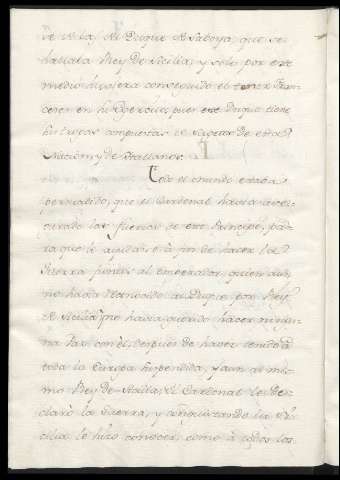 de  del Duque de Saboya, que se
hallava Rey de Sicilia, y solo por este
medio huviera conseguido el tener Fran
ceses en su Exercito, pues este Duque tiene
sus tropas compuestas de Sugetos de esta
Nacion, y de Italianos.
Todo el mundo estaba
persuadido, que el Cardenal havia asse-
gurado las fuerzas de este Principe, pa-
ra que le ayudase, à fin de hacer la
Guerra juntos al Emperador, quien aun
no havia reconocido al Duque por Rey
de Sicilia, ni havia querido hacer ningu-
na Paz con èl, despues de haver tenido à
toda la Europa suspendida, y aun al mis-
mo Rey de Sicilia, el Cardenal le de-
clarò la Guerra, y conquistando la Si-
cilia, le hizo conocer, como à todos los